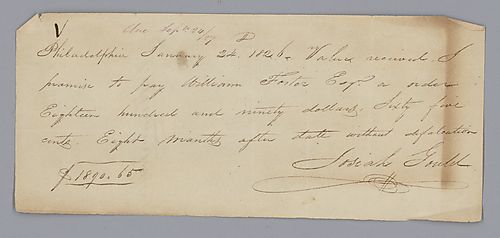 due Sept. 24/27
Philadelphia January 24. 1826. Value received I
promise to pay William Foster Esqr. or order
Eighteen hundred and ninety dollars, Sixty five
cents. Eight months after date without defalcation
Josiah Gould
$1890.65